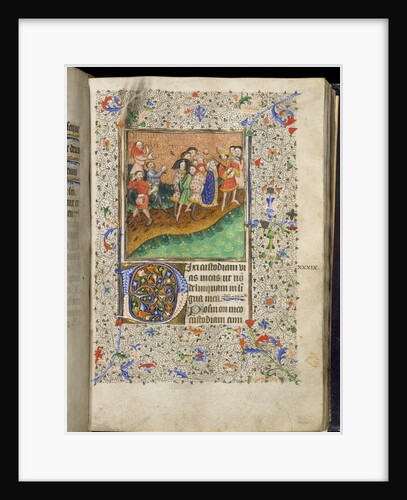 Dixi custodiam vi
as meas ut nō
delinquam in li
gua mea.
Posui ori meo
custodiam cum
xxxix.